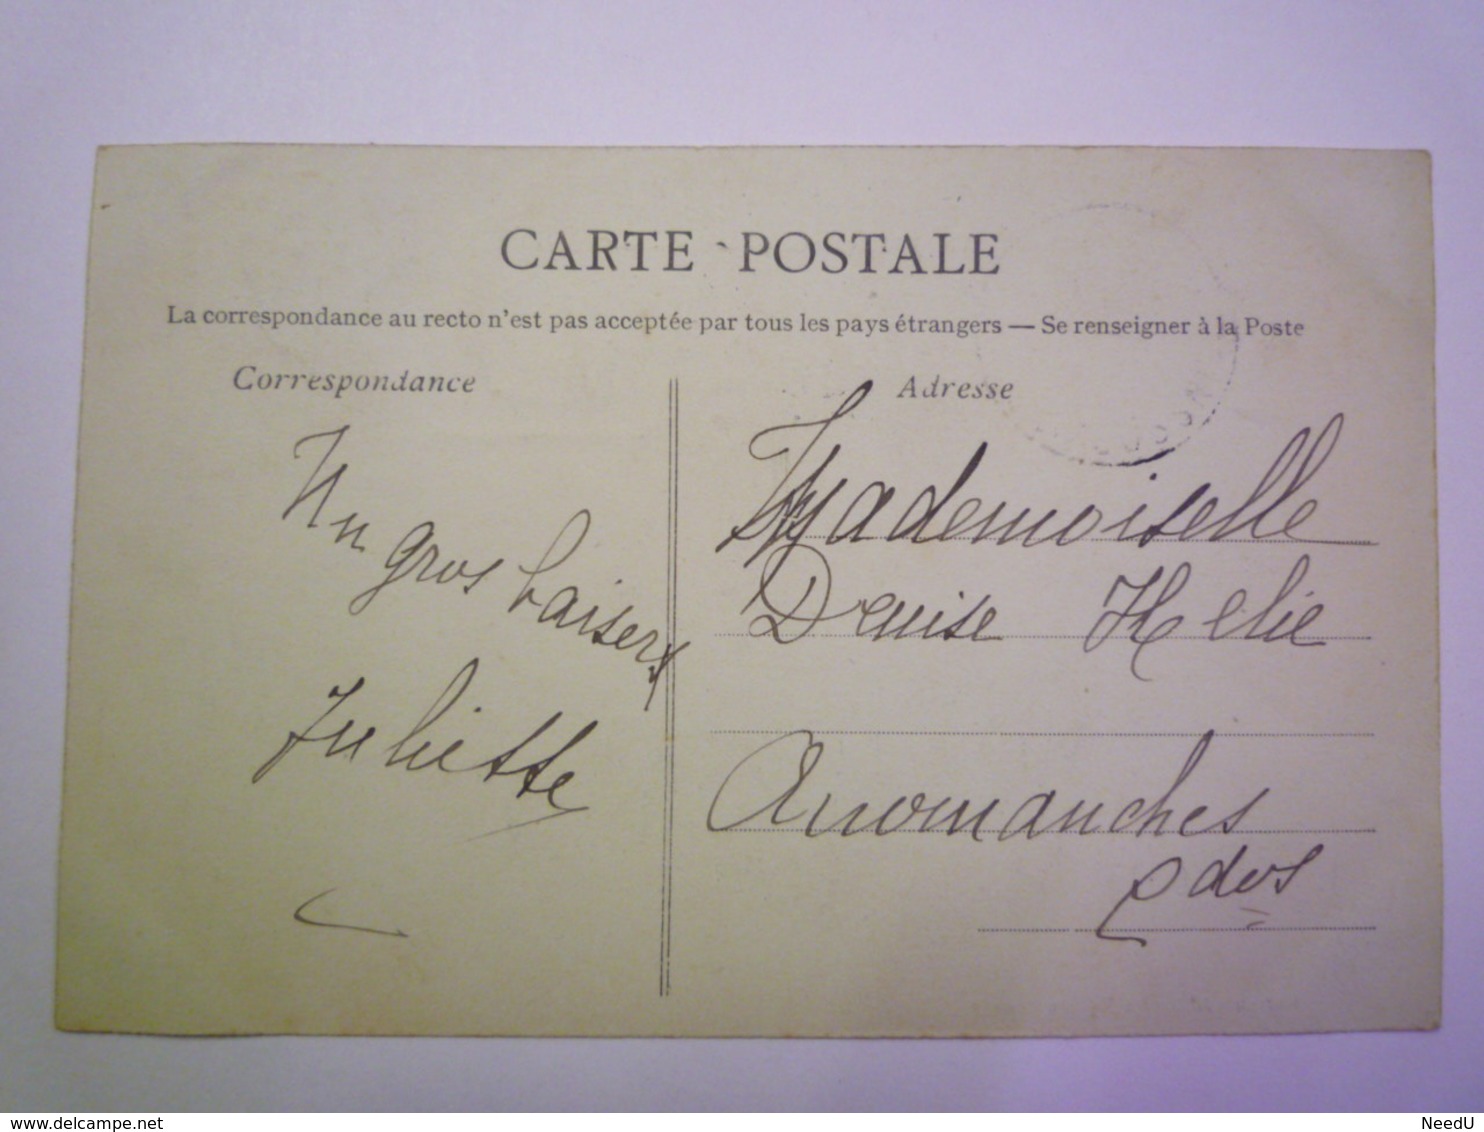 CARTE POSTALE
La correspondance au recto n'est pas acceptée par tous les pays étrangers — Se renseigner à la Poste
Correspondance
Un
gros baiser
Juliette
Adresse
Mademoiselle
Denise Helie
Arromanches
delcampe.net
NeedU